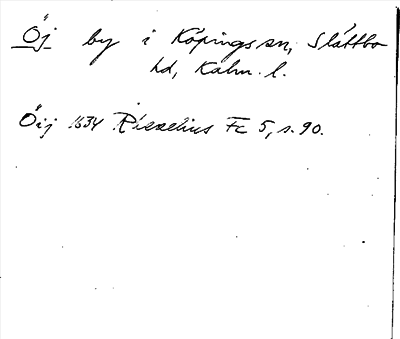 Öj by i Köpings sn, Slättbo
hd, Kalm. l.
Öij 1634 Rieselius Fc 5, s. 90.